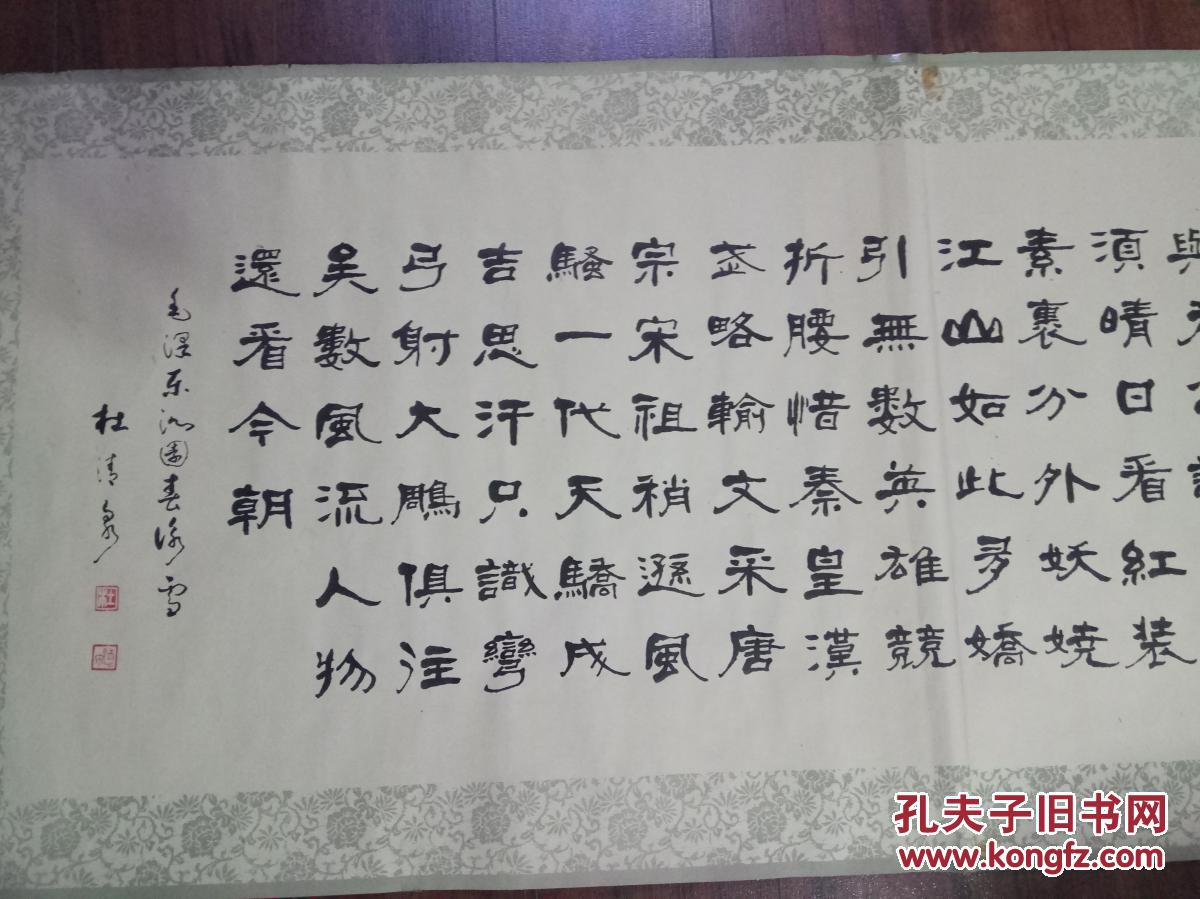 與
須晴日看紅装
素裹分外妖娆
江山如此多嬌
引無數英雄競
折腰惜秦皇漢
武略輸文采唐
宗宋祖稍遜風
騷一代天驕成
吉思汗只識彎
弓射大鵰俱注
吴數風流人物
還看今朝
毛泽东沁園春詠雪
杜清泉
孔夫子旧书网
www.kongfz.com